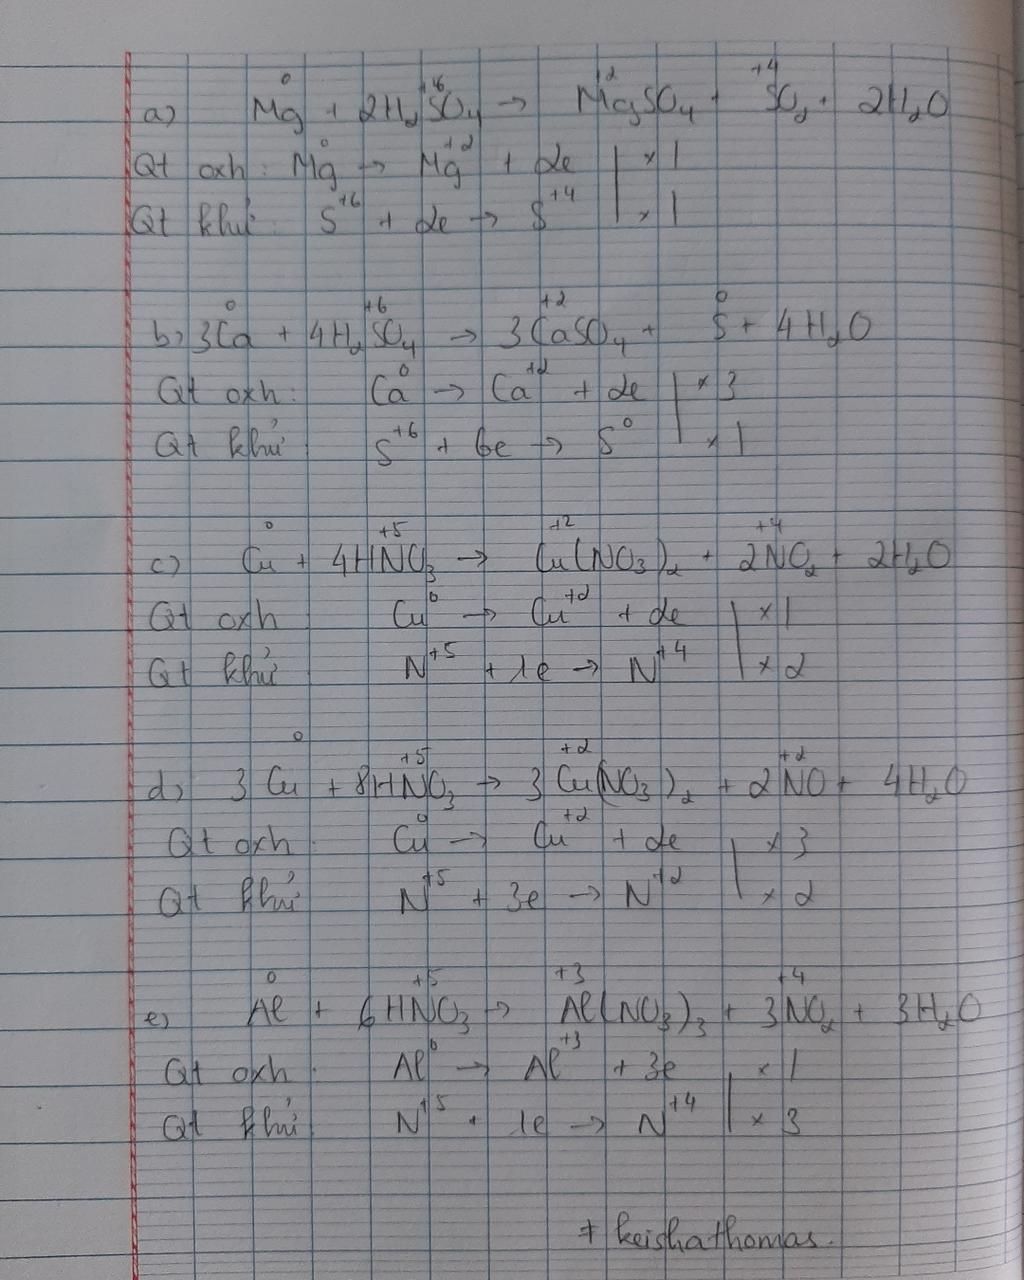 a) Mg⁰ + 2H₂S⁺⁶O₄ → Mg⁺²SO₄ + S⁺⁴O₂ + 2H₂O
Qt oxh: Mg⁰ → Mg⁺² + 2e | × 1
Qt khử: S⁺⁶ + 2e → S⁺⁴ | × 1
b) 3Ca⁰ + 4H₂S⁺⁶O₄ → 3Ca⁺²SO₄ + S⁰ + 4H₂O
Qt oxh: Ca⁰ → Ca⁺² + 2e | × 3
Qt khử S⁺⁶ + 6e → S⁰ | × 1
c) Cu⁰ + 4HN⁺⁵O₃ → Cu⁺²(NO₃)₂ + 2N⁺⁴O₂ + 2H₂O
Qt oxh Cu⁰ → Cu⁺² + 2e | × 1
Qt khử N⁺⁵ + 1e → N⁺⁴ | × 2
d) 3Cu⁰ + 8HN⁺⁵O₃ → 3Cu⁺²(NO₃)₂ + 2N⁺²O + 4H₂O
Qt oxh. Cu⁰ → Cu⁺² + 2e | × 3
Qt khử N⁺⁵ + 3e → N⁺² | × 2
e) Al⁰ + 6HN⁺⁵O₃ → Al⁺³(NO₃)₃ + 3N⁺⁴O₂ + 3H₂O
Qt oxh. Al⁰ → Al⁺³ + 3e | × 1
Qt khử N⁺⁵ + 1e → N⁺⁴ | × 3
# keishathomas.